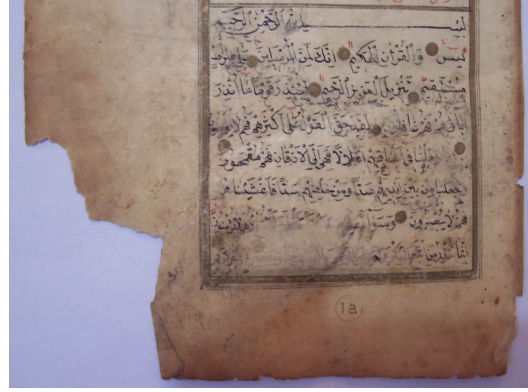 بسم الله الرحمن الرحيم
يس والقرآن الحكيم إنك لمن المرسلين على صراط
مستقيم تنزيل العزيز الرحيم لتنذر قوما ما أنذر
آباؤهم فهم غافلون لقد حق القول على أكثرهم فهم لا
جعلنا في أعناقهم أغلالا فهي إلى الأذقان فهم مقمحون
وجعلنا من بين أيديهم سدا ومن خلفهم سدا فأغشيناهم
فهم لا يبصرون وسواء
إنما تنذر من
1a